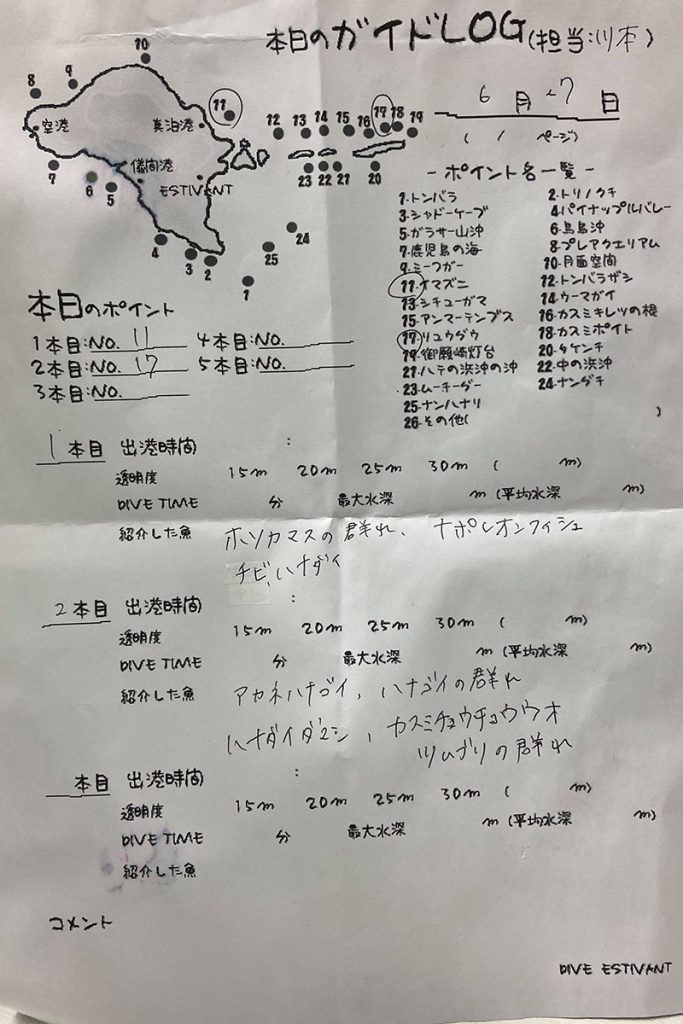 本日のガイドLOG(担当:川本)
6月27日
( / ページ)
10
8 9
空港 真泊港 11
12 13 14 15 16 17 18 19
儀間港
7 6 5 ESTIVANT
23 22 21 20
4 3 2 24
25
1
- ポイント名一覧 -
1.トンバラ 2.トリノクチ
3.シャドーケーブ 4.パイナップルバレー
5.ガラサー山沖 6.鳥島沖
7.鹿児島の海 8.プレアクエリアム
9.ミーフガー 10.月面空間
11.ナマズニ 12.トンバラザシ
13.シチューガマ 14.ウーマガイ
15.アンマーテンブス 16.カスミキレツの根
17.リュウグウ 18.カスミポイト
19.御願崎灯台 20.タケンチ
21.ハテの浜沖の沖 22.中の浜沖
23.ムーチーダー 24.ナンダチ
25.ナンハナリ
26.その他( )
本日のポイント
1本目:NO. 11 4本目:NO.
2本目:NO. 17 5本目:NO.
3本目:NO.
1本目 出港時間 :
透明度 15m 20m 25m 30m ( m)
DIVE TIME 分 最大水深 m (平均水深 m)
紹介した魚 ホソカマスの群れ、ナポレオンフィシュ
チビ、ハナダイ
2本目 出港時間 :
透明度 15m 20m 25m 30m ( m)
DIVE TIME 分 最大水深 m (平均水深 m)
紹介した魚 アカネハナゴイ, ハナゴイの群れ
ハナダイダマシ, カスミチョウチョウウオ
ツムブリの群れ
本目 出港時間 :
透明度 15m 20m 25m 30m ( m)
DIVE TIME 分 最大水深 m (平均水深 m)
紹介した魚
コメント
DIVE ESTIVANT